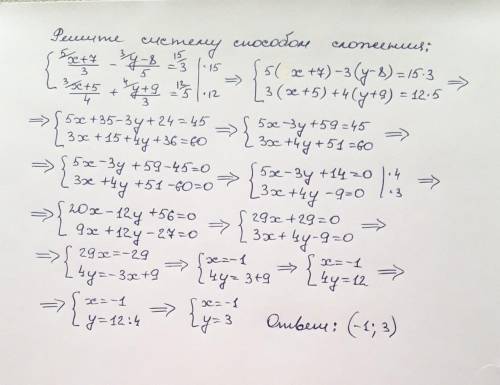 Решите систему способом сложения:
{ ⁵⧵(x+7)/3 − ³⧵(y−8)/5 = ¹⁵⧵3 |·15 ; ³⧵(x+5)/4 + ⁴⧵(y+9)/3 = ¹²⧵5 |·12 ⇒ { 5( x+7)−3(y−8)=15·3 ; 3(x+5)+4(y+9)=12·5 ⇒
⇒ { 5x+35−3y+24=45 ; 3x+15+4y+36=60 ⇒ { 5x−3y+59=45 ; 3x+4y+51=60 ⇒
⇒ { 5x−3y+59−45=0 ; 3x+4y+51−60=0 ⇒ { 5x−3y+14=0 |·4 ; 3x+4y−9=0 |·3 ⇒
⇒ { 20x−12y+56=0 ; 9x+12y−27=0 ⇒ { 29x+29=0 ; 3x+4y−9=0 ⇒
⇒ { 29x=−29 ; 4y=−3x+9 ⇒ { x=−1 ; 4y=3+9 ⇒ { x=−1 ; 4y=12 ⇒
⇒ { x=−1 ; y=12:4 ⇒ { x=−1 ; y=3 Ответ: (−1; 3)